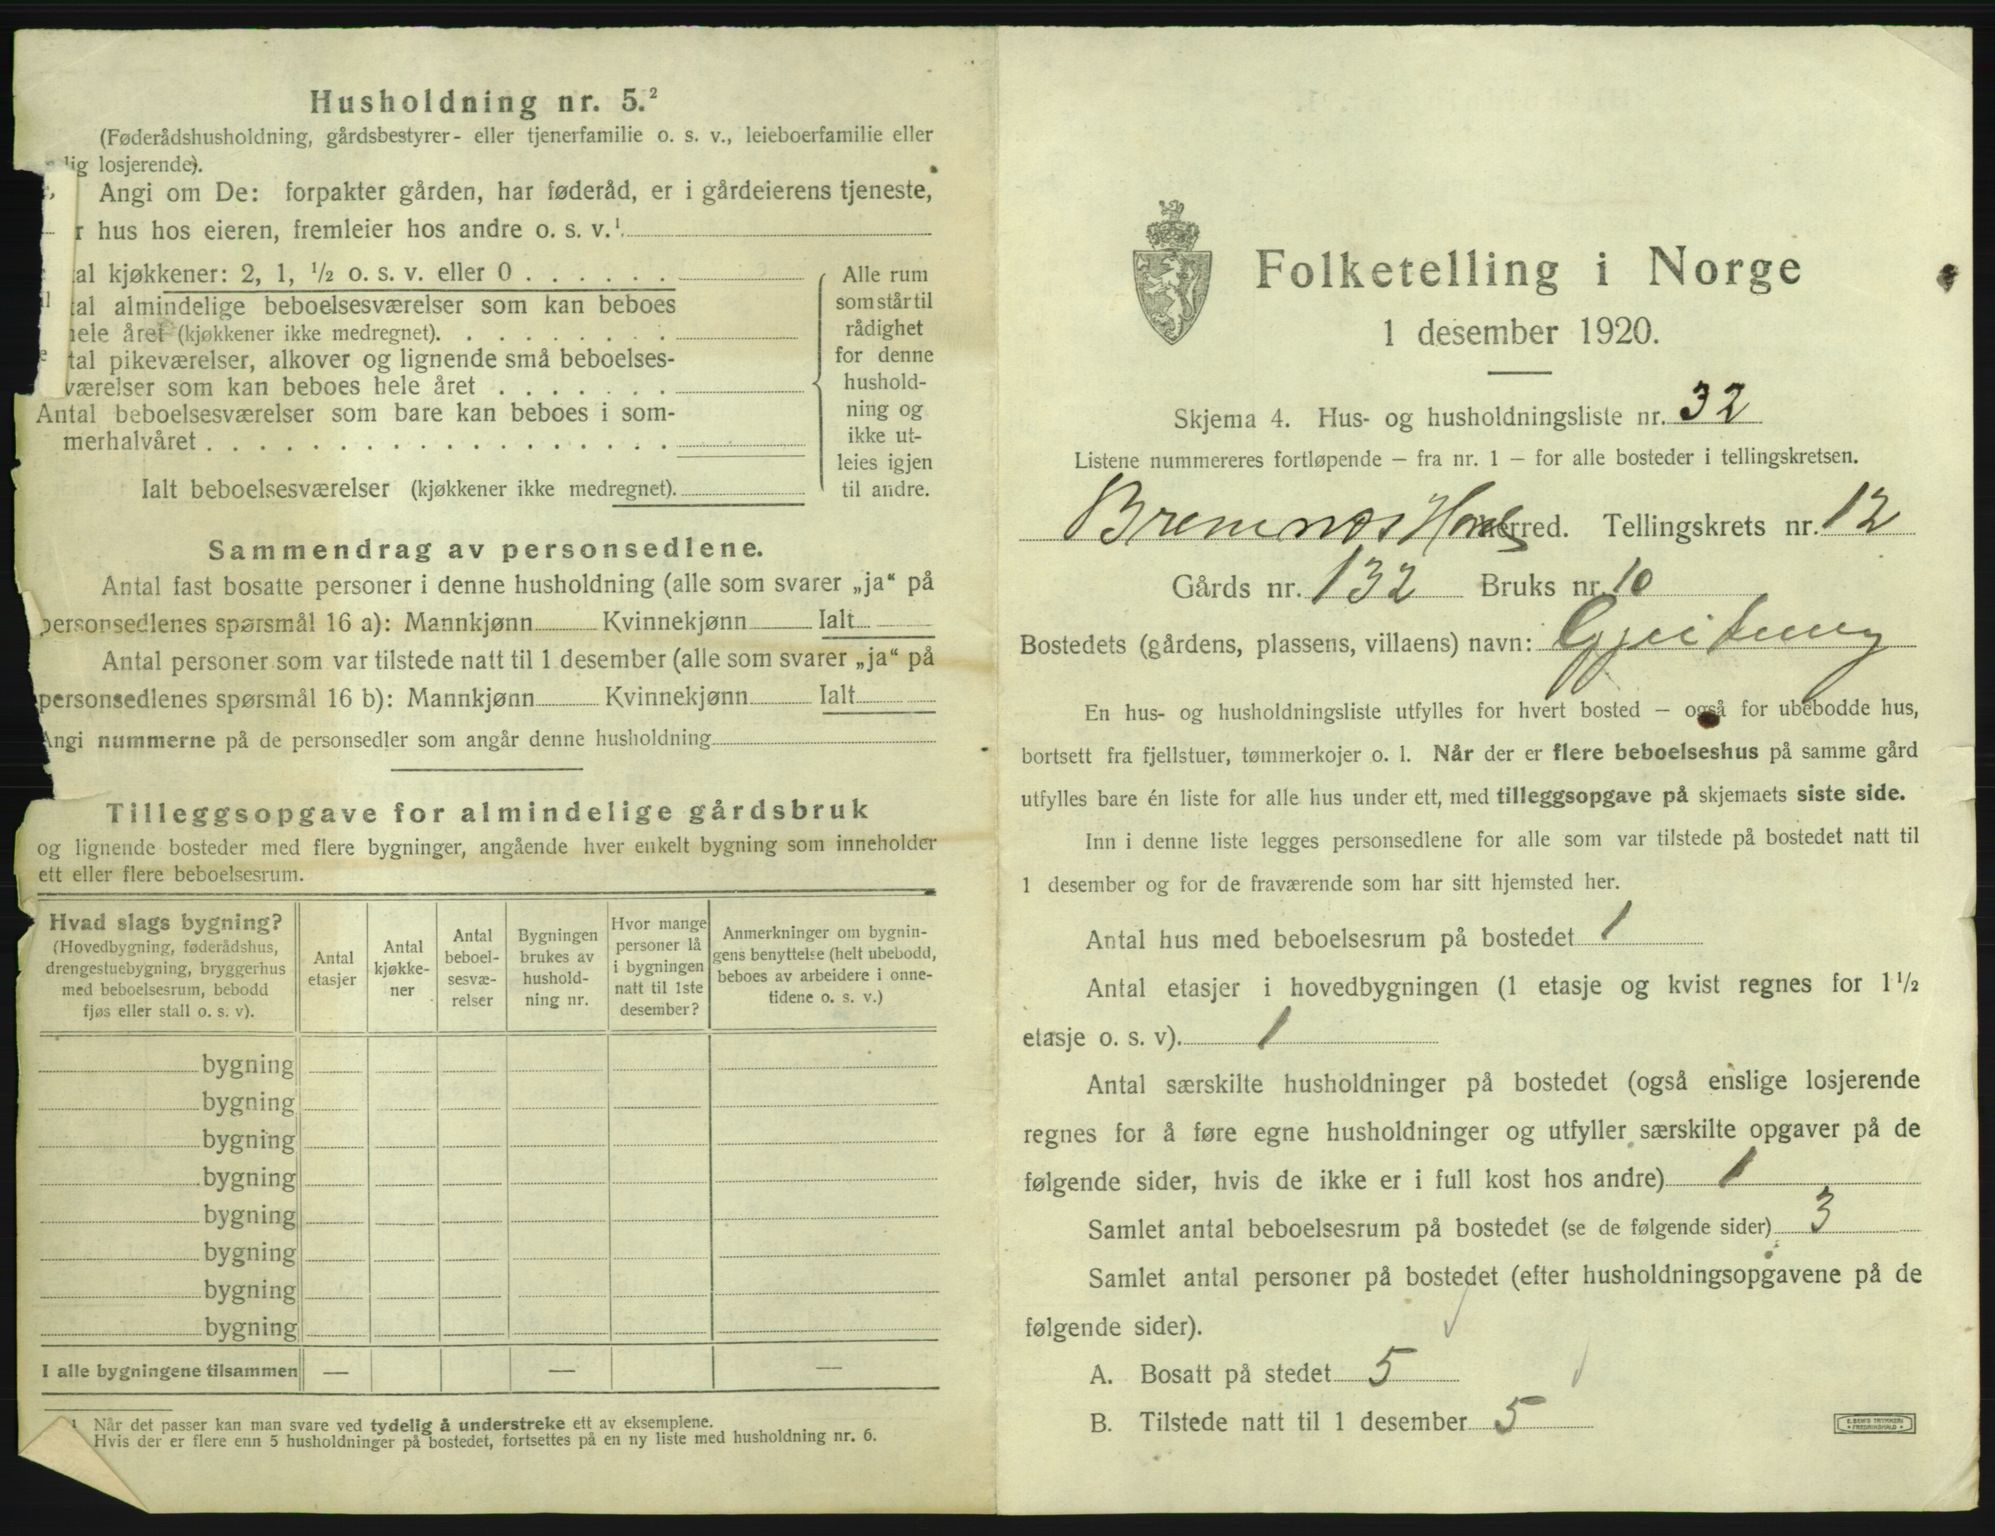 Husholdning nr. 5.²
(Føderådshusholdning, gårdsbestyrer- eller tjenerfamilie o. s. v., leieboerfamilie eller
lig losjerende).
Angi om De: forpakter gården, har føderåd, er i gårdeierens tjeneste,
r hus hos eieren, fremleier hos andre o. s. v.¹
tal kjøkkener: 2, 1, ½ o. s. v. eller 0 . . . . . .
tal almindelige beboelsesværelser som kan beboes
hele året (kjøkkener ikke medregnet). . . . . . . . .
tal pikeværelser, alkover og lignende små beboelses-
værelser som kan beboes hele året . . . . . . .
Antal beboelsesværelser som bare kan beboes i som-
merhalvåret . . . . . . . . . . . . . . . . . .
Ialt beboelsesværelser (kjøkkener ikke medregnet).
Alle rum
som står til
rådighet
for denne
hushold-
ning og
ikke ut-
leies igjen
til andre.
Sammendrag av personsedlene.
Antal fast bosatte personer i denne husholdning (alle som svarer „ja“ på
personsedlenes spørsmål 16 a): Mannkjønn Kvinnekjønn Ialt
Antal personer som var tilstede natt til 1 desember (alle som svarer „ja“ på
personsedlenes spørsmål 16 b): Mannkjønn Kvinnekjønn Ialt
Angi nummerne på de personsedler som angår denne husholdning
Tilleggsopgave for almindelige gårdsbruk
og lignende bosteder med flere bygninger, angående hver enkelt bygning som inneholder
ett eller flere beboelsesrum.
Hvad slags bygning?
(Hovedbygning, føderådshus,
drengestuebygning, bryggerhus
med beboelsesrum, bebodd
fjøs eller stall o. s. v).
Antal
etasjer
Antal
kjøkke-
ner
Antal
beboel-
sesvæ-
relser
Bygningen
brukes av
hushold-
ning nr.
Hvor mange
personer lå
i bygningen
natt til 1ste
desember?
Anmerkninger om bygnin-
gens benyttelse (helt ubebodd,
beboes av arbeidere i onne-
tidene o. s. v.)
bygning
bygning
bygning
bygning
bygning
bygning
bygning
bygning
I alle bygningene tilsammen — — —
¹ Når det passer kan man svare ved tydelig å understreke ett av eksemplene.
Hvis der er flere enn 5 husholdninger på bostedet, fortsettes på en ny liste med husholdning nr. 6.
Folketelling i Norge
1 desember 1920.
Skjema 4. Hus- og husholdningsliste nr. 32
Listene nummereres fortløpende – fra nr. 1 – for alle bosteder i tellingskretsen.
Bremnes herred. Tellingskrets nr. 12
Gårds nr. 132 Bruks nr. 10
Bostedets (gårdens, plassens, villaens) navn:
En hus- og husholdningsliste utfylles for hvert bosted – også for ubebodde hus,
bortsett fra fjellstuer, tømmerkojer o. l. Når der er flere beboelseshus på samme gård
utfylles bare én liste for alle hus under ett, med tilleggsopgave på skjemaets siste side.
Inn i denne liste legges personsedlene for alle som var tilstede på bostedet natt til
1 desember og for de fraværende som har sitt hjemsted her.
Antal hus med beboelsesrum på bostedet 1
Antal etasjer i hovedbygningen (1 etasje og kvist regnes for 1½
etasje o. s. v). 1
Antal særskilte husholdninger på bostedet (også enslige losjerende
regnes for å føre egne husholdninger og utfyller særskilte opgaver på de
følgende sider, hvis de ikke er i full kost hos andre) 1
Samlet antal beboelsesrum på bostedet (se de følgende sider) 3
Samlet antal personer på bostedet (efter husholdningsopgavene på de
følgende sider).
A. Bosatt på stedet 5
B. Tilstede natt til 1 desember 5